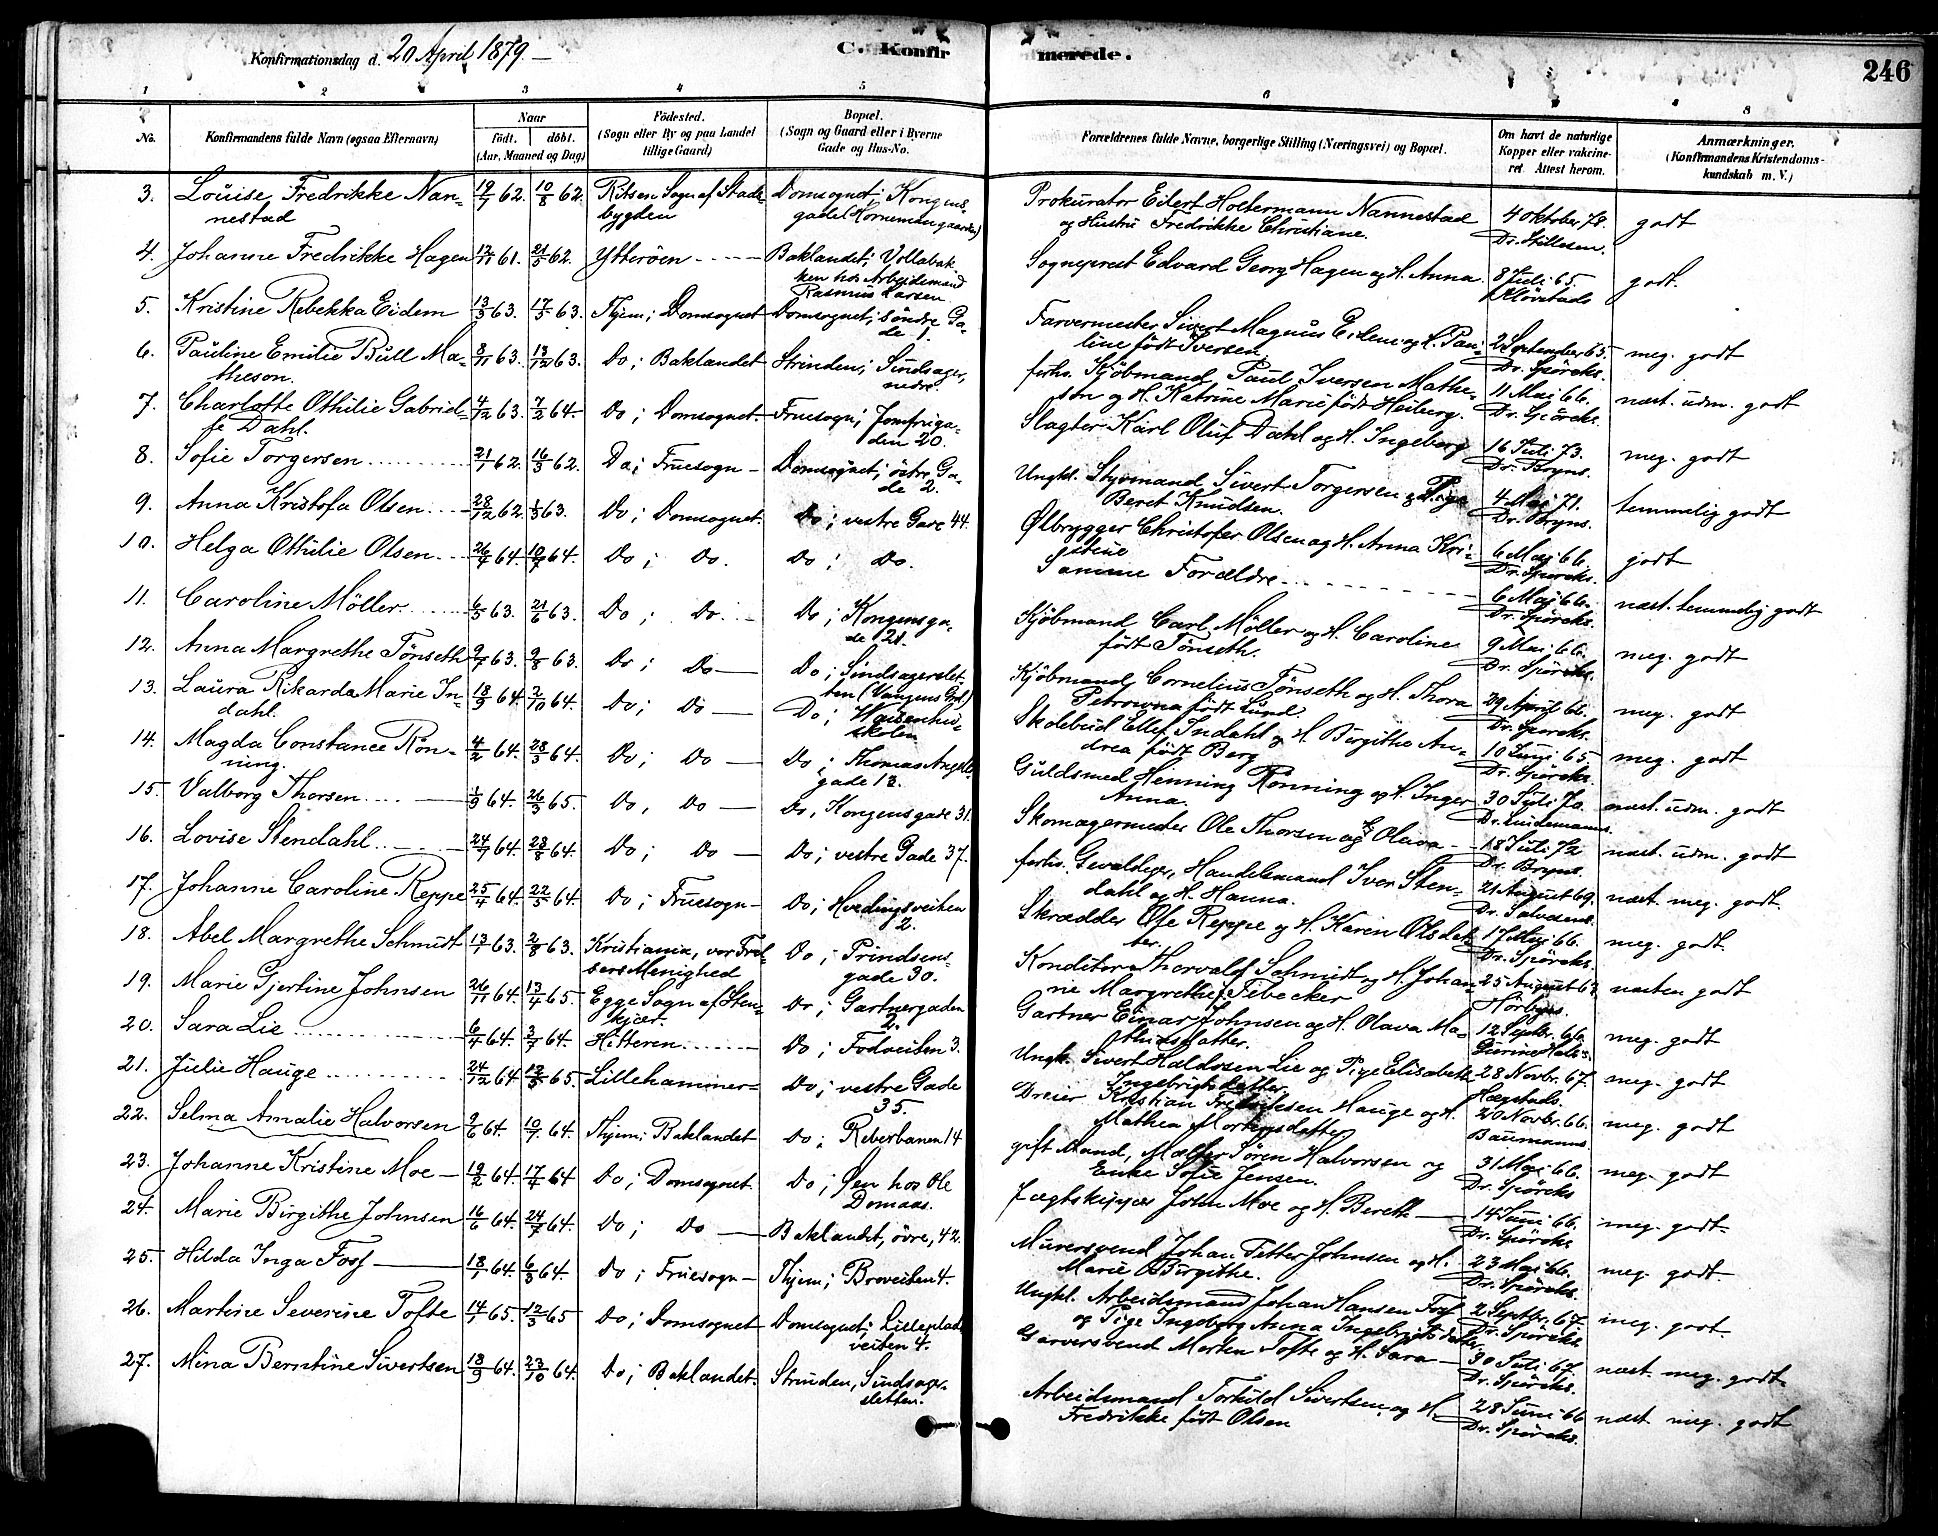 Konfirmationsdag d. 20 April 1879. —
C. Konfirmerede.
246
1 2 3 4 5 6 7 8
No.
Konfirmandens fulde Navn (ogsaa Efternavn)
Naar
födt. döbt.
(Aar, Maaned og Dag)
Födested.
(Sogn eller By og paa Landet
tillige Gaard)
Bopæl.
(Sogn og Gaard eller i Byerne
Gade og Hus-No.
Forældrenes fulde Navne, borgerlige Stilling (Næringsvei) og Bopæl.
Om havt de naturlige
Kopper eller vakcine-
ret. Attest herom.
Anmærkninger.
(Konfirmandens Kristendoms-
kundskab m. V.)
3. Louise Fredrikke Nan- 19/7 62. 10/8 62. Ritsen Sogn af Stads- Domsognet; Kongens- Prokurator Eilert Holtermann Nannestad 4 Oktober 78. godt
nestad bygden gade (Hornemansgaarden) og Hustru Fredrikke Christiane. Dr. Stillesen.
4. Johanne Fredrikke Hagen 61. 21/5 62. Ytteröen Baklandet; Vollabak Sogneprest Edvard Georg Hagen og H. Anna 8 Juli 65. godt.
ken hos Arbeidsmand
Rasmus Larsen
5. Kristine Rebekka Eidem 13/3 63. 17/5 63. Thjem; Domsognet Domsognet; söndre Ga- Farvermester Sivert Magnus Eidem og H. Pau- 2 September 65. meg. godt
de 1. line födt Iversen Dr. Spörcks.
6. Pauline Emilie Bull Ma- 8/11 63. 13/12 63. Do; Baklandet Strinden; Sundsager, forhv. Kjöbmand Paul Iversen Mathe- 11 Mai 66. næst. udm. godt
theson. nedre son og H. Katrine Marie födt Heiberg. Dr. Spörcks.
7. Charlotte Othilie Gabriel- 4/12 63. 7/2 64. Do; Domsognet Fruesogn; Jomfruga- Slagter Karl Oluf Dahl og H. Ingeborg 16 Juli 73. meg. godt
se Dahl. den 20. Dr. Bryns.
8. Sofie Torgersen 21/1 62. 16/3 62. Do; Fruesogn Domsognet; östre Ga- Ungkl. Styrmand Sivert Torgersen og Pige 4 Mai 71. temmelig godt
de 2. Beret Knudsen. Dr. Bryns.
9. Anna Kristofa Olsen 28/12 62. 1/3 63. Do; Domsognet. Do; vestre Gade 44. Ölbrygger Christofer Olsen og H. Anna Kri- 6 Mai 66. godt
stine Dr. Spörcks.
10. Helga Othilie Olsen 26/4 64. 10/7 64. Do; Do. Do; Do. Samme Forældre 6 Mai 66. næst. temmelig godt
Dr. Spörcks.
11. Caroline Möller 6/5 63. 21/6 63. Do; Do. Do; Kongensga- Kjöbmand Carl Möller og H. Caroline 9 Mai 66. meg. godt
de 21. födt Tönseth. Dr. Spörcks.
12. Anna Margrethe Tönseth 9/7 63. 9/8 63. Do; Do — Do; Sundsagerslet- Kjöbmand Cornelius Tönseth og H. Thora 29 April 66. meg. godt
ten (Vangens Grd.) Petrowna födt Lund. Dr. Spörcks.
13. Laura Rikarda Marie In- 18/9 64. 2/10 64. Do; Do — Do; Waisenhu- Skolebud Ellef Indahl og H. Birgithe An- 10 Juni 65. meg. godt
dahl. skolen drea födt Berg Dr. Spörcks.
14. Magda Constance Rön- 4/2 64. 28/3 64. Do; Do — Do; Thomas Angells Guldsmed Henning Rönning og H. Inger 30 Juli 70. næst. udm. godt
ning. gade 13. Anna. Dr. Lindemanns.
15. Valborg Thorsen 1/9 64. 26/3 65. Do; Do — Do; Kongensgade 31. Skomagermester Ole Thorsen og H. Olava 18 Juli 72 næst. udm. godt
Dr. Bryns.
16. Lovise Stendahl 24/7 64. 28/8 64. Do; Do — Do; vestre Gade 37. forhv. Gevaldiger, Handelsmand Iver Sten- 21 August 69. næst. meg. godt
dahl og H. Hanna. Dr. Salvesens.
17. Johanne Caroline Reppe 25/4 64. 22/5 64. Do; Fruesogn Do; Hvedingsveiten Skrædder Ole Reppe og H. Karen Olsdat- 17 Mai 66. meg. godt.
2. ter. Dr. Spörcks.
18. Abel Margrethe Schmidt 13/7 63. 2/8 63. Kristiania, vor Frel- Do; Prindsens- Konditor Thorvald Schmidt og H. Johan- 25 August 63 næsten godt
sers Menighed gade 30. ne Margrethe f. Fibecker Hörbyes.
19. Marie Gjertine Johnsen 26/11 64. 13/4 65. Egge Sogn af Sten- Do; Gartnergaden Gartner Einar Johnsen og H. Olava Ma- 12 Septbr. 66. meg. godt
kjær. 2. thiasdatter.
20. Sara Lie 6/4 64. 3/7 64. Hitteren Do; Fodveiten 3. Ungk. Sivert Haldosen Lie og Pige Elisabeth 28 Novbr. 67. meg. godt
Ingebrigtsdatter Hægstads.
21. Julie Hauge 24/12 64 12/3 65. Lillehammer Do; vestre Gade Dreier Kristian Fredriksen Hauge og H. 20 Novbr. 66. meg. godt
35. Mathea Mortensdatter Baumanns
22. Selma Amalie Halvorsen 2/6 64. 10/7 64. Thjem; Baklandet Do; Reberbanen 14 gift Mand, Mægler Sören Halvorsen og 31 Mai 66. meg. godt
Enke Sofie Jensen. Dr. Spörcks
23. Johanne Kristine Moe — 19/2 64. 17/4 64 Do; Domsognet Do; Öen hos Ole Jægtskipper John Moe og H. Bereth — 14 Juni 66. meg. godt.
Domaas. Dr. Spörcks
24. Marie Birgithe Johnsen 16/6 64. 24/7 64. Do; Do — Baklandet, övre, 42. Murersvend Johan Petter Johnsen og H. 23 Mai 66. meg. godt.
Marie Birgithe. Dr. Spörcks.
25. Hilda Inga Foss — 18/1 64. 6/3 64. Do; Fruesogn — Thjem; Broveiten 4. Ungkl. Arbeidsmand Johan Hansen Foss 2 Septbr. 67. meg. godt.
og Pige Ingeborg Anna Ingebrigtsdatter Dr. Spörcks
26. Martine Severine Tofte 14/1 65. 12/3 65 Do; Domsognet Domsognet; Lilleplads Garversvend Morten Tofte og H. Sara — 30 Juli 67. næst. meg. godt.
veiten 4. Dr. Spörcks.
27. Mina Berntine Sivertsen 18/9 64. 23/10 64. Do; Baklandet. Strinden, Sundsager- Arbeidsmand Torkild Sivertsen og H. 28 Juni 66 næst. meg. godt
sletten. Fredrikke födt Olsen Dr. Spörcks.